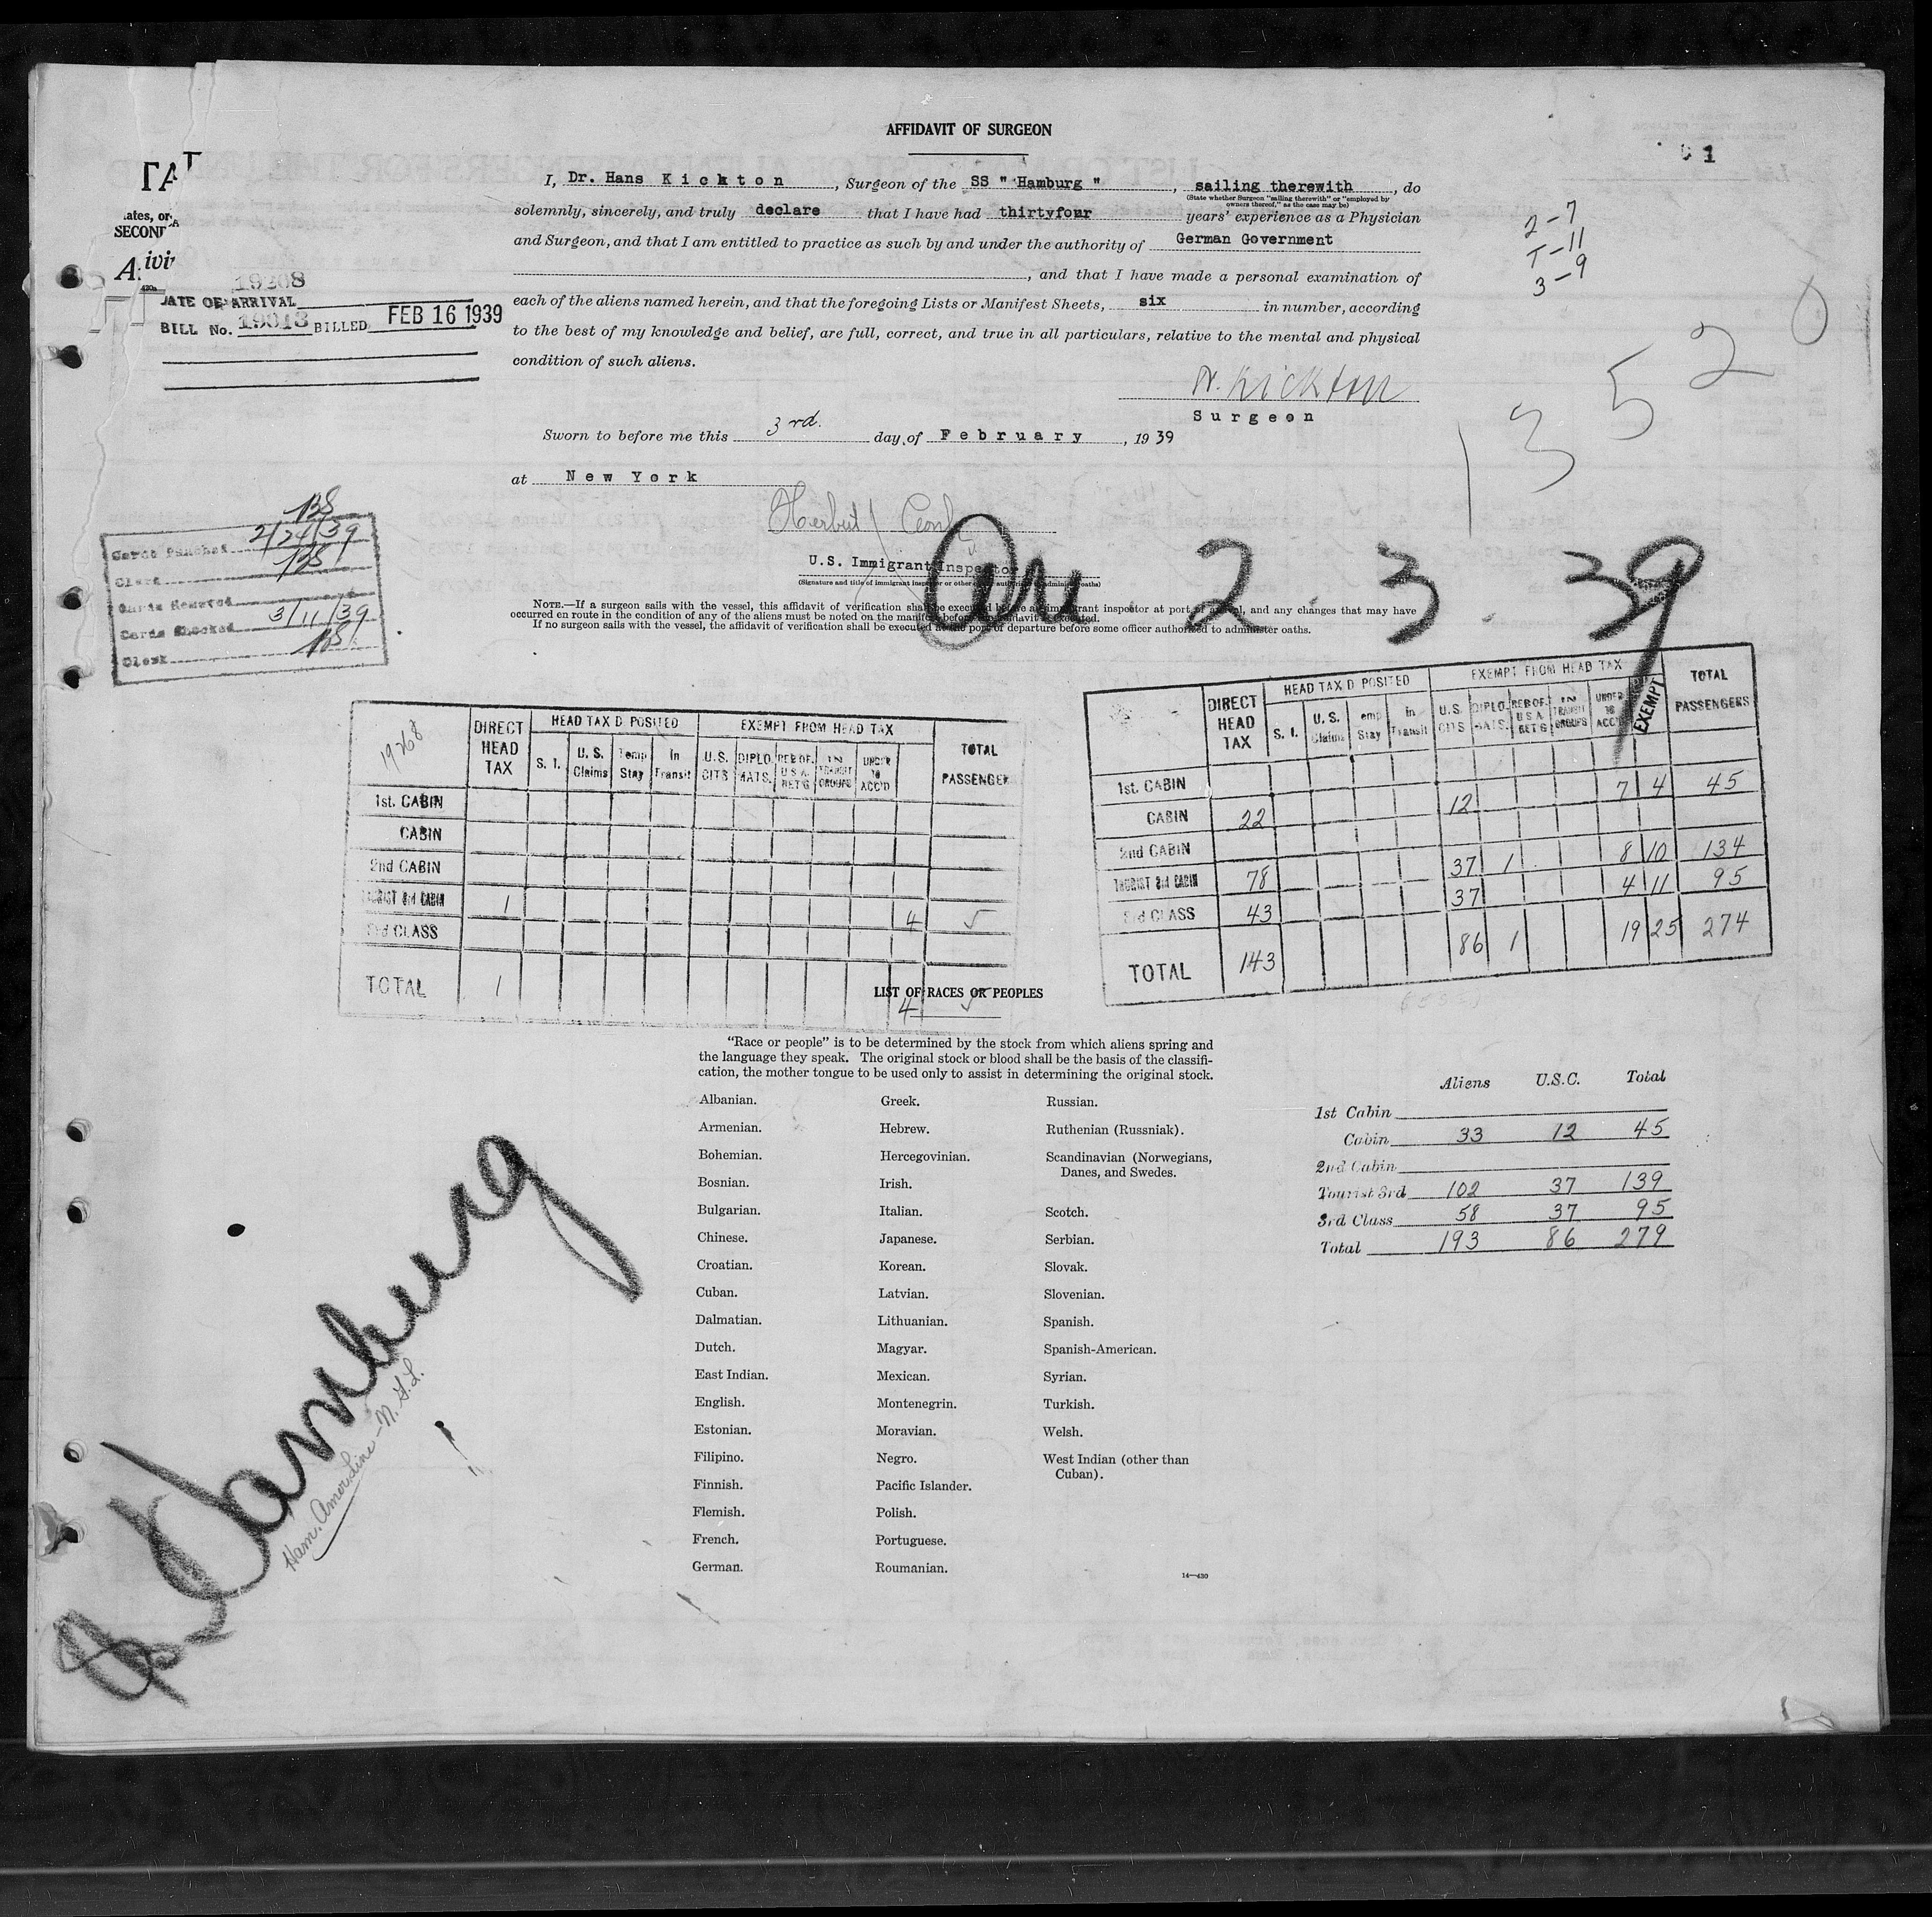 AFFIDAVIT OF SURGEON
1
I, Dr. Hans Kickton, Surgeon of the SS " Hamburg ", sailing therewith, do
(State whether Surgeon "sailing therewith" or "employed by
owners thereof," as the case may be)
solemnly, sincerely, and truly declare that I have had thirtyfour years' experience as a Physician
and Surgeon, and that I am entitled to practice as such by and under the authority of German Government
, and that I have made a personal examination of
each of the aliens named herein, and that the foregoing Lists or Manifest Sheets, six in number, according
to the best of my knowledge and belief, are full, correct, and true in all particulars, relative to the mental and physical
condition of such aliens.
2-7
T-11
3-9
13520
SECOND
19268
DATE OF ARRIVAL
BILL No. 19013 BILLED FEB 16 1939
Kickton
Surgeon
Sworn to before me this 3rd. day of February, 1939
at New York
Herbert
U.S. Immigrant Inspector
(Signature and title of immigrant inspector or other officer authorized to administer oaths)
NOTE.—If a surgeon sails with the vessel, this affidavit of verification shall be executed before an immigrant inspector at port of arrival, and any changes that may have
occurred en route in the condition of any of the aliens must be noted on the manifest before the affidavit is executed.
If no surgeon sails with the vessel, the affidavit of verification shall be executed at the port of departure before some officer authorized to administer oaths.
Arr. 2. 3. 39
2/24/39
Clerk
Cards Removed
Cards Checked 3/11/39
Clerk
19268
DIRECT HEAD TAX
HEAD TAX D POSITED
EXEMPT FROM HEAD TAX
TOTAL PASSENGER
S. I. U. S. Claims Temp Stay In Transit U.S. CITS DIPLOMATS. REB OF. U S A RET'G IN TRANSIT GROUPS UNDER 16 ACC'D
1st. CABIN
CABIN
2nd CABIN
TOURIST 3rd CABIN 1 4 5
3rd CLASS
TOTAL 1 4 5
DIRECT HEAD TAX
HEAD TAX D POSITED
EXEMPT FROM HEAD TAX
TOTAL PASSENGERS
S. I. U. S. Claims emp Stay in Transit U.S. CITS DIPLO. MATS. REB OF. U S A RET'G IN TRANSIT GROUPS UNDER 16 ACC'D EXEMPT
1st. CABIN
CABIN 22 12 7 4 45
2nd CABIN
TOURIST 3rd CABIN 78 37 1 8 10 134
3rd CLASS 43 37 4 11 95
TOTAL 143 86 1 19 25 274
LIST OF RACES OR PEOPLES
"Race or people" is to be determined by the stock from which aliens spring and
the language they speak. The original stock or blood shall be the basis of the classifi-
cation, the mother tongue to be used only to assist in determining the original stock.
Albanian.
Armenian.
Bohemian.
Bosnian.
Bulgarian.
Chinese.
Croatian.
Cuban.
Dalmatian.
Dutch.
East Indian.
English.
Estonian.
Filipino.
Finnish.
Flemish.
French.
German.
Greek.
Hebrew.
Hercegovinian.
Irish.
Italian.
Japanese.
Korean.
Latvian.
Lithuanian.
Magyar.
Mexican.
Montenegrin.
Moravian.
Negro.
Pacific Islander.
Polish.
Portuguese.
Roumanian.
Russian.
Ruthenian (Russniak).
Scandinavian (Norwegians,
Danes, and Swedes.
Scotch.
Serbian.
Slovak.
Slovenian.
Spanish.
Spanish-American.
Syrian.
Turkish.
Welsh.
West Indian (other than
Cuban).
14—430
Aliens U.S.C. Total
1st Cabin
Cabin 33 12 45
2nd Cabin
Tourist 3rd 102 37 139
3rd Class 58 37 95
Total 193 86 279
Hamburg
Ham. Amer. Line - N. G. L.